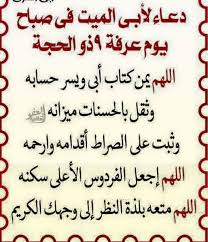 دعاء لأبى الميت فى صباح
يوم عرفة ٩ ذو الحجة
اللهم يمن كتاب أبى ويسر حسابه
وثقل بالحسنات ميزانه
وثبت على الصراط أقدامه وارحمه
اللهم إجعل الفردوس الأعلى سكنه
اللهم متعه بلذة النظر إلى وجهك الكريم